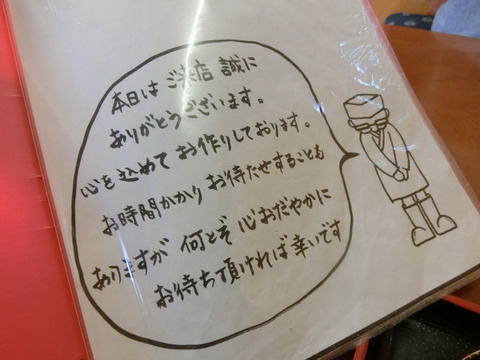 本日は ご来店 誠に
ありがとうございます。
心を込めて お作りしております。
お時間かかり お待たせすることも
ありますが 何とぞ 心おだやかに
お待ち頂ければ幸いです